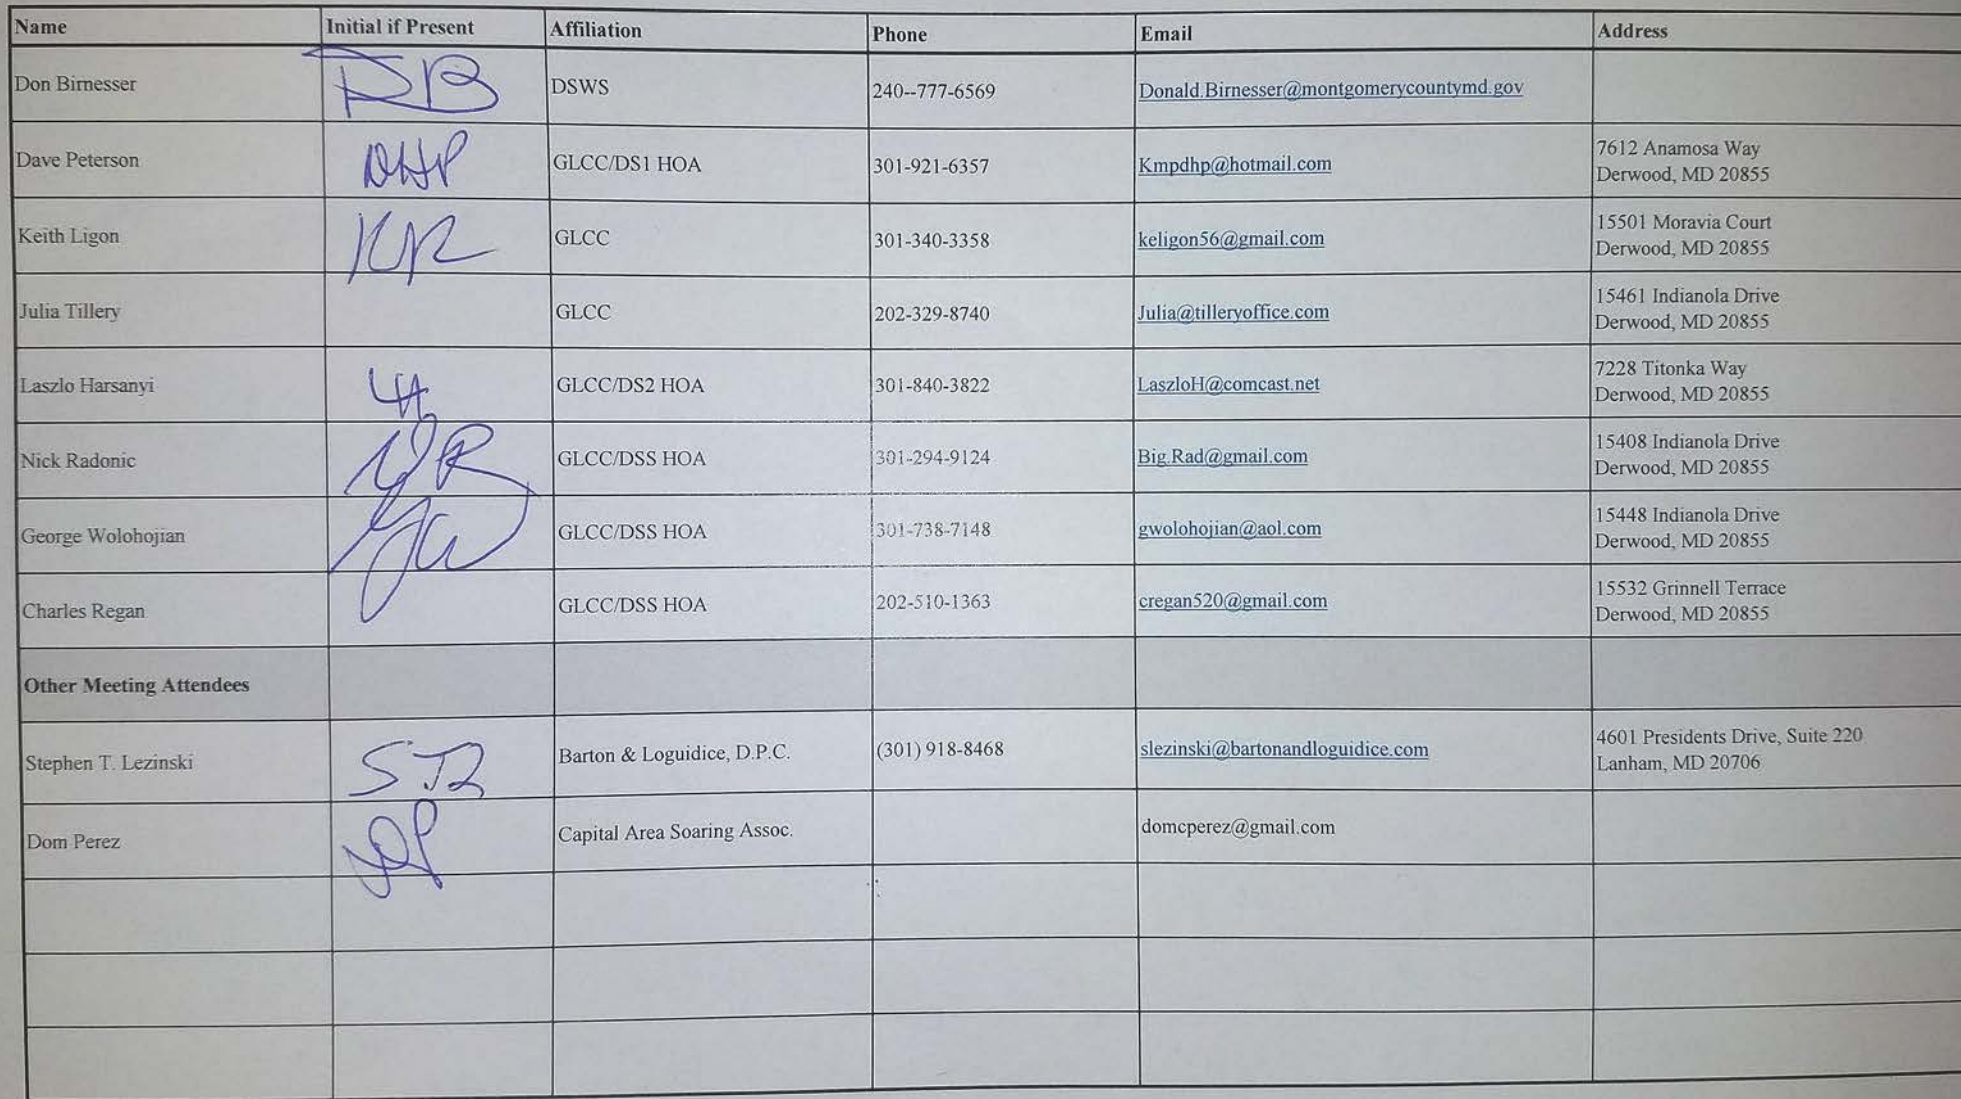 Name Initial if Present Affiliation Phone Email Address
Don Birnesser DB DSWS 240--777-6569 Donald.Birnesser@montgomerycountymd.gov
Dave Peterson DHP GLCC/DS1 HOA 301-921-6357 Kmpdhp@hotmail.com 7612 Anamosa Way
Derwood, MD 20855
Keith Ligon GLCC 301-340-3358 keligon56@gmail.com 15501 Moravia Court
Derwood, MD 20855
Julia Tillery GLCC 202-329-8740 Julia@tilleryoffice.com 15461 Indianola Drive
Derwood, MD 20855
Laszlo Harsanyi LH GLCC/DS2 HOA 301-840-3822 LaszloH@comcast.net 7228 Titonka Way
Derwood, MD 20855
Nick Radonic NR GLCC/DSS HOA 301-294-9124 Big.Rad@gmail.com 15408 Indianola Drive
Derwood, MD 20855
George Wolohojian GW GLCC/DSS HOA 301-738-7148 gwolohojian@aol.com 15448 Indianola Drive
Derwood, MD 20855
Charles Regan GLCC/DSS HOA 202-510-1363 cregan520@gmail.com 15532 Grinnell Terrace
Derwood, MD 20855
Other Meeting Attendees
Stephen T. Lezinski STL Barton & Loguidice, D.P.C. (301) 918-8468 slezinski@bartonandloguidice.com 4601 Presidents Drive, Suite 220
Lanham, MD 20706
Dom Perez DP Capital Area Soaring Assoc. domcperez@gmail.com